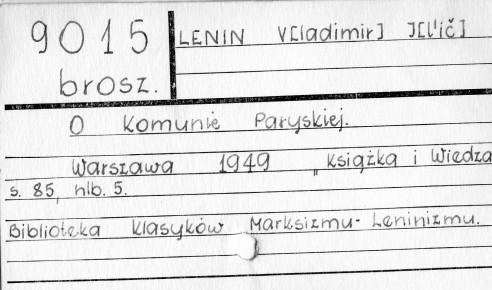 9015
brosz.
LENIN V[ladimir] I[l'ič]
O Komunie Paryskiej.
Warszawa 1949 „Książka i Wiedza
s. 85, nlb. 5.
Biblioteka Klasyków Marksizmu-Leninizmu.